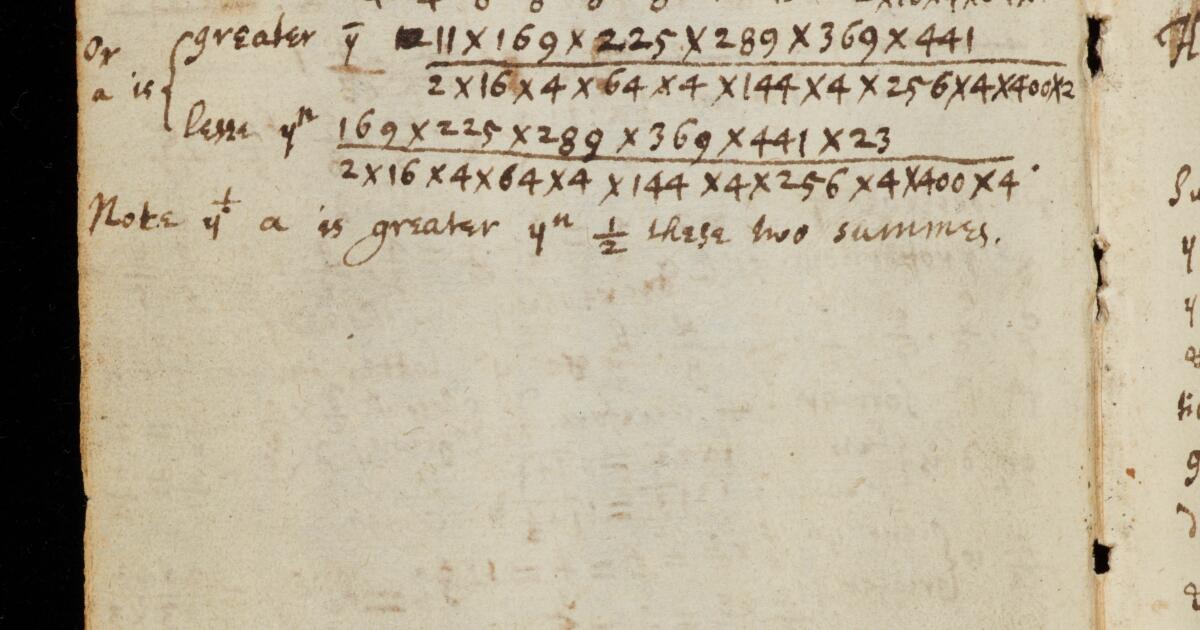 Or greater yⁿ 211×169×225×289×369×441
a is 2×16×4×64×4×144×4×256×4×400×2
lesse yⁿ 169×225×289×369×441×23
2×16×4×64×4×144×4×256×4×400×4.
Note yᵗ a is greater yⁿ 1/2 these two summes.